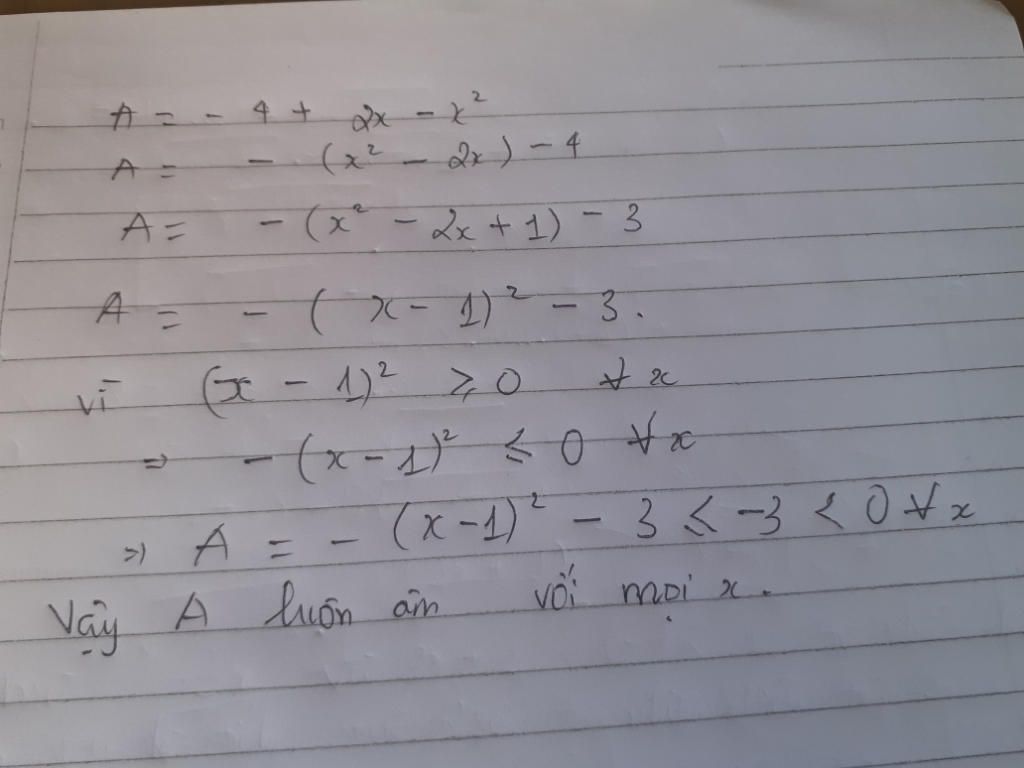 A = - 4 + 2x - x²
A = - (x² - 2x) - 4
A = - (x² - 2x + 1) - 3
A = - ( x - 1)² - 3.
vì (x - 1)² ≥ 0 ∀ x
⇒ - (x - 1)² ≤ 0 ∀ x
⇒ A = - (x - 1)² - 3 ≤ -3 < 0 ∀ x
Vậy A luôn âm với mọi x.